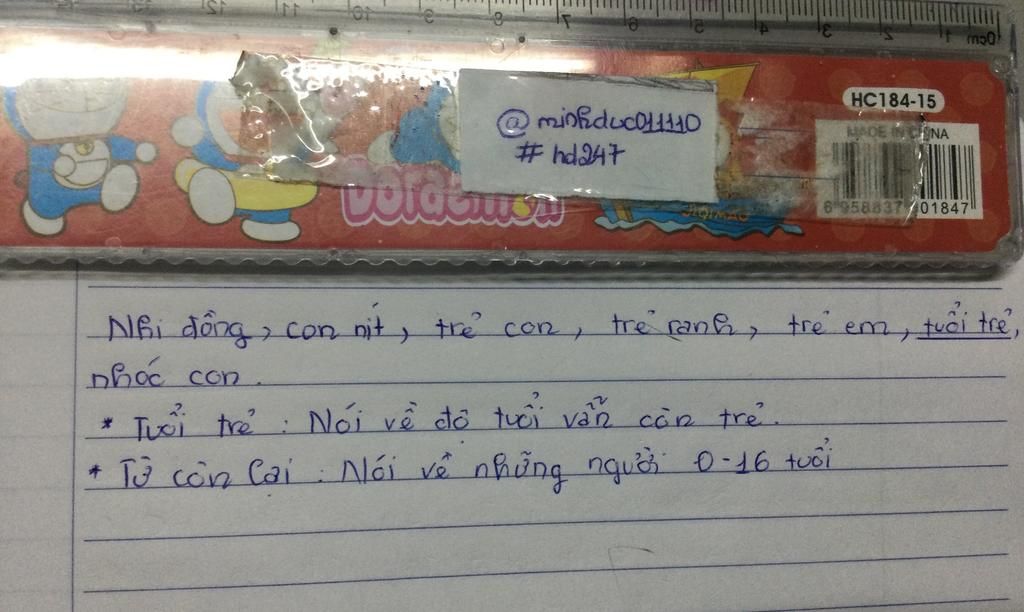 12 11 10 9 8 7 6 5 4 3 2 1 0cm
HC184-15
@minhduc011110
# hd247
MADE IN CHINA
Doraemon
6 958837 01847
Nhi đồng, con nít, trẻ con, trẻ ranh, trẻ em, tuổi trẻ,
nhóc con.
* Tuổi trẻ : Nói về độ tuổi vẫn còn trẻ.
* Từ còn lại : Nói về những người 0-16 tuổi